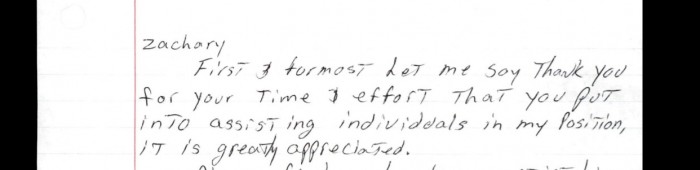 zachary
First & formost Let me say Thank you
for your Time & effort That you put
into assisting individuals in my Position,
iT is greatly appreciated.